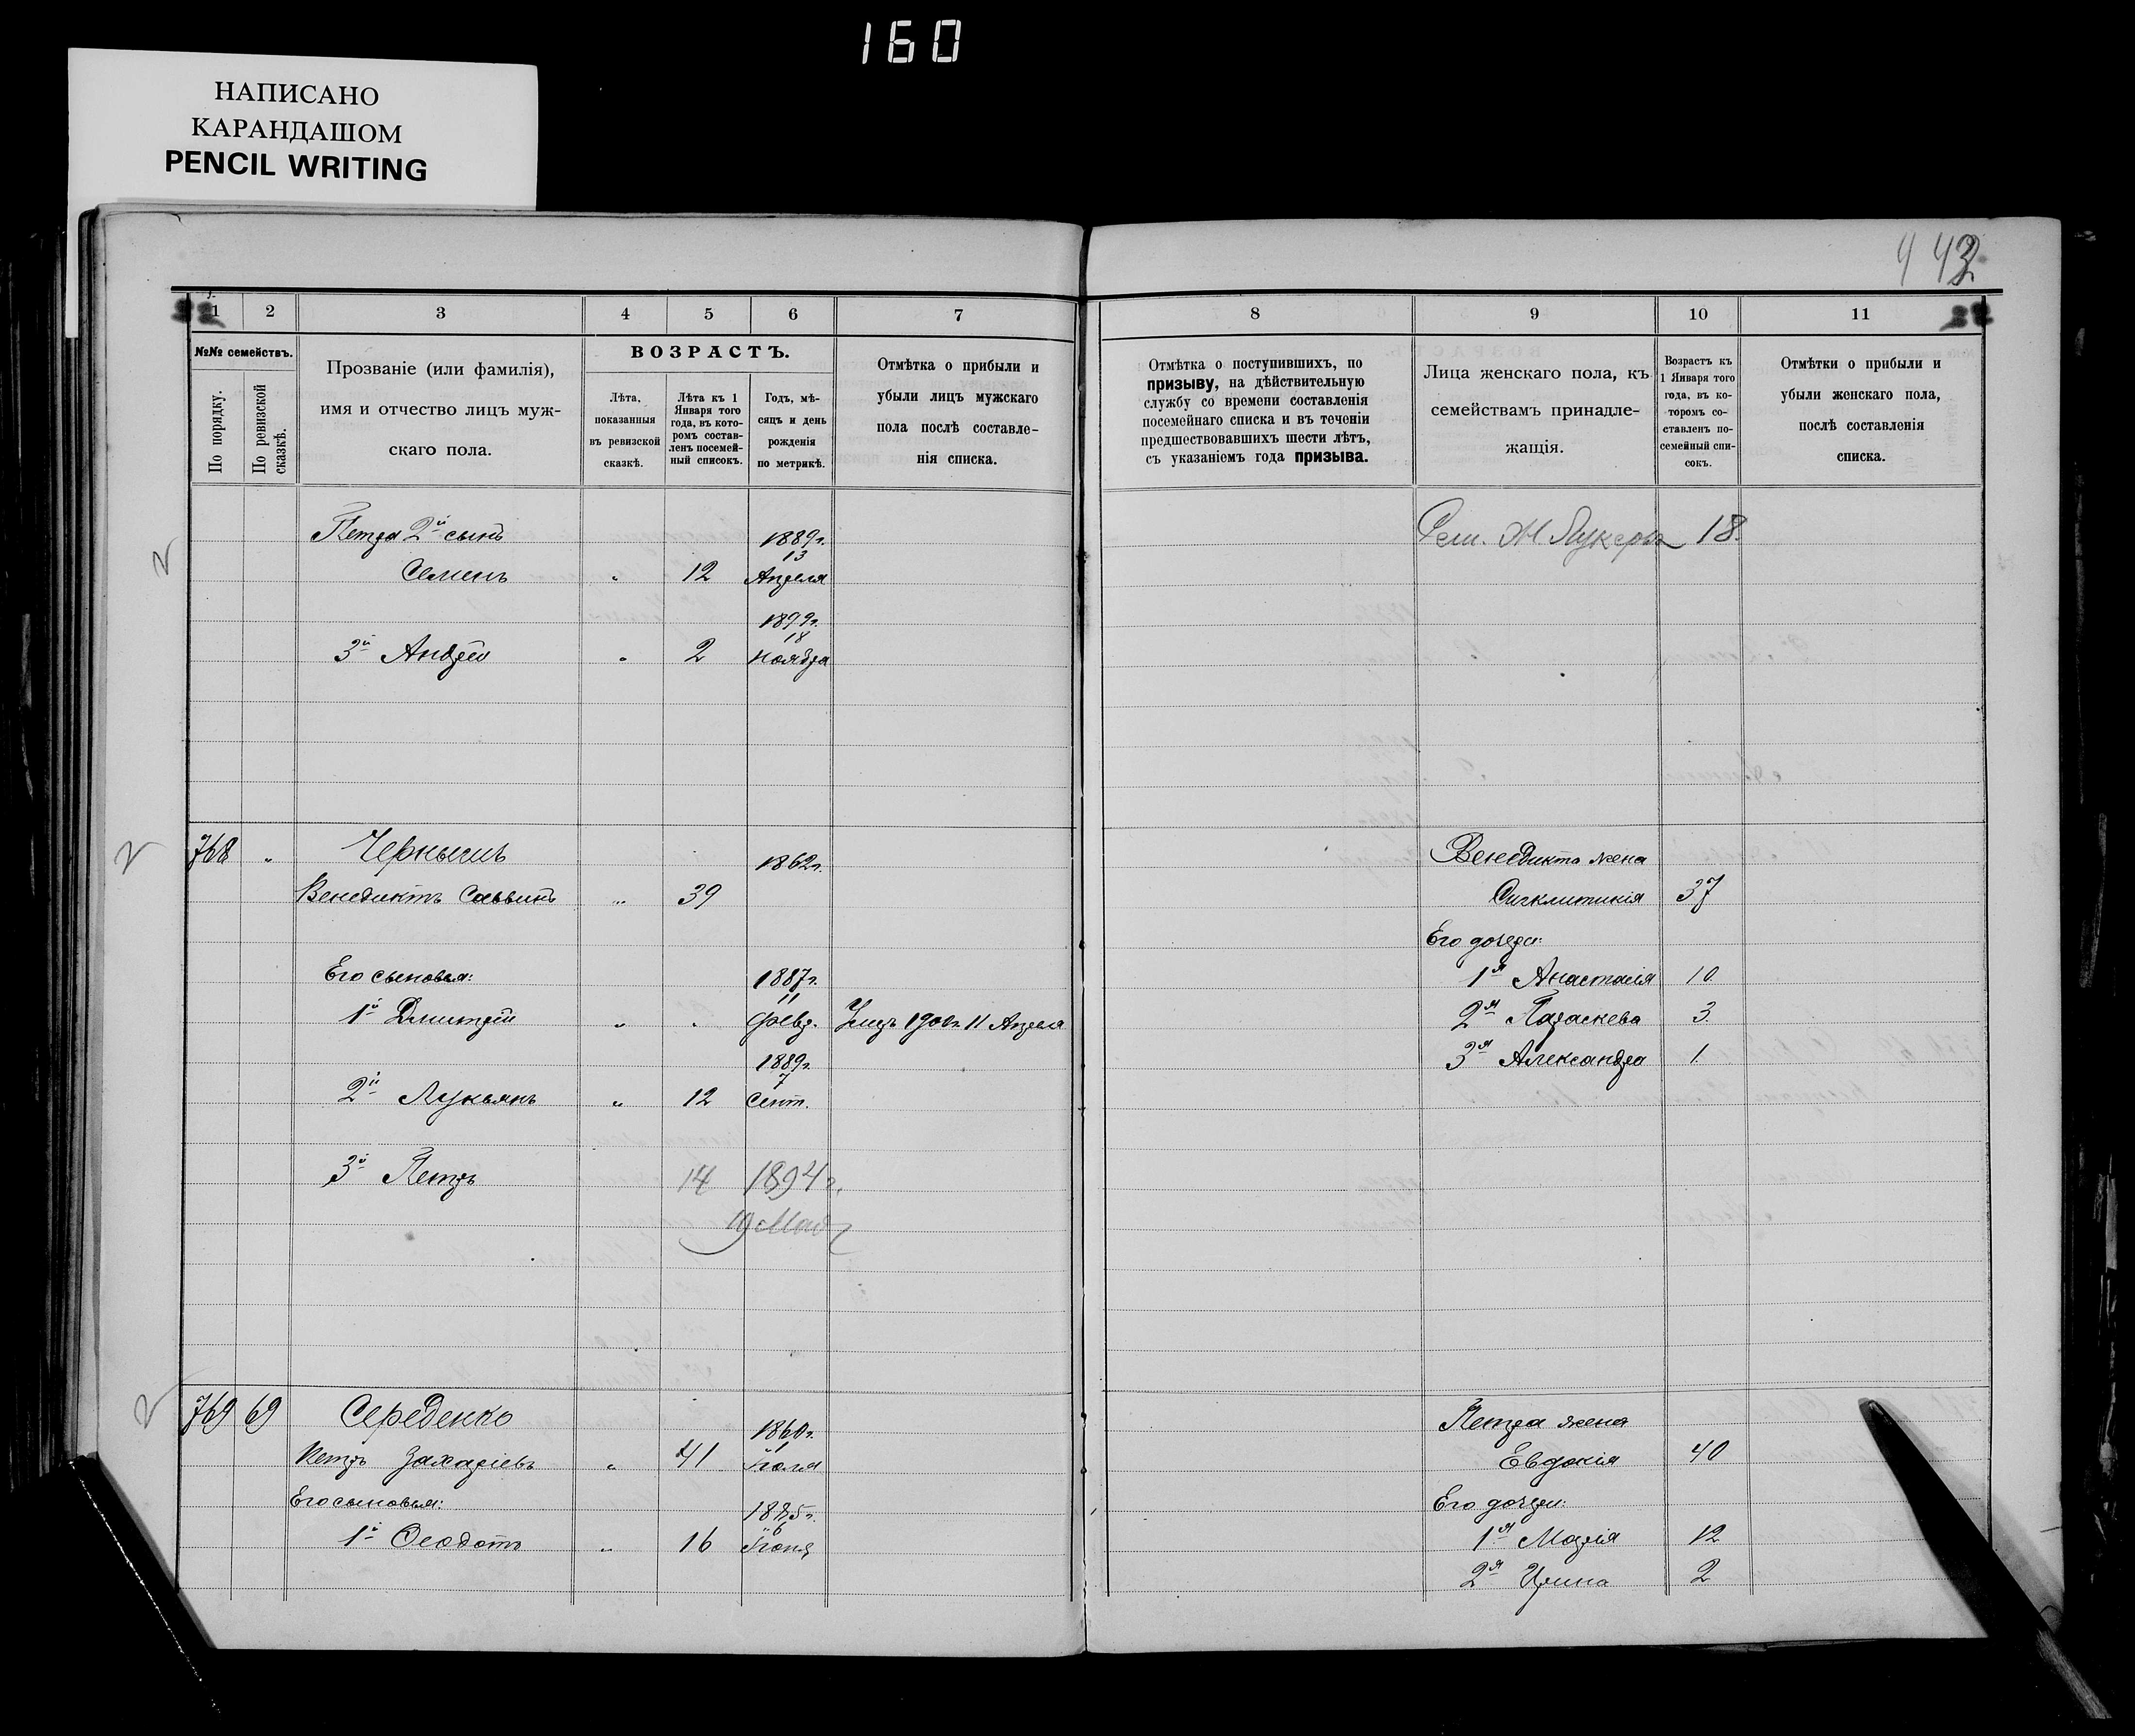 160
НАПИСАНО
КАРАНДАШОМ
PENCIL WRITING
443
1 2 3 4 5 6 7
№№ семействъ.
По порядку.
По ревизской сказкѣ.
Прозваніе (или фамилія),
имя и отчество лицъ муж-
скаго пола.
ВОЗРАСТЪ.
Лѣта,
показанныя
въ ревизской
сказкѣ.
Лѣта къ 1
Января того
года, въ кото-
ромъ состав-
ленъ посемей-
ный списокъ.
Годъ, мѣ-
сяцъ и день
рожденія
по метрикѣ.
Отмѣтка о прибыли и
убыли лицъ мужскаго
пола послѣ составле-
нія списка.
Петра 2й сынъ 1889г.
13
Семенъ " 12 Апреля
1899г.
18
3й Андрей " 2 Ноября
768 " Чернышъ 1862г.
Венедиктъ Саввинъ " 39
Его сыновья: 1887г.
11
1й Дмитрій " " Февр. Умеръ 1900г. 11 Апреля
1889г.
7
2й Лукьянъ " 12 Сент.
3й Петръ 14 1894г.
19 Мая
769 69 Середенко 1860г.
Петръ Захаріевъ " 41 Іюля
Его сыновья: 1885г.
6
1й Ѳеодотъ " 16 Іюня
8 9 10 11
Отмѣтка о поступившихъ, по
призыву, на дѣйствительную
службу со времени составленія
посемейнаго списка и въ теченіи
предшествовавшихъ шести лѣтъ,
съ указаніемъ года призыва.
Лица женскаго пола, къ
семействамъ принадле-
жащія.
Возрастъ къ
1 Января того
года, въ ко-
торомъ со-
ставленъ по-
семейный спи-
сокъ.
Отмѣтки о прибыли и
убыли женскаго пола,
послѣ составленія
списка.
Лукерья 18.
Венедикта жена
Синклитикія 37
Его дочери:
1я Анастасія 10
2я Параскева 3.
3я Александра 1.
Петра жена
Евдокія 40
Его дочери:
1я Марія 12
2я Ирина 2